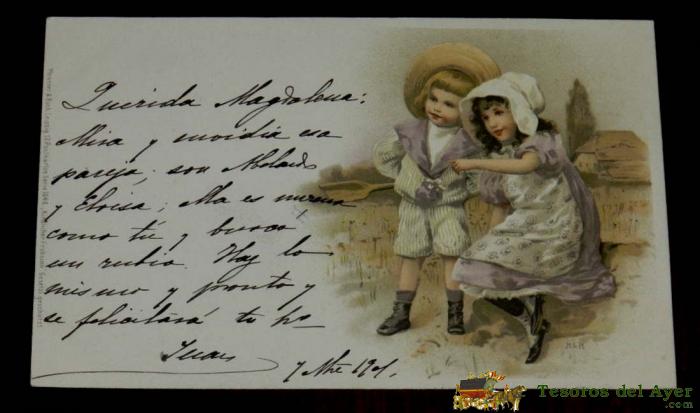 Querida Magdalena:
Mira y envidia esa
pareja; son Abelardo
y Eloisa; Ella es morena
como tú y busca
un rubio. Haz lo
mismo y pronto y
se felicitará tu ho
Juan
7 Nbre 1901.
M&R
Tesoros del Ayer
.com